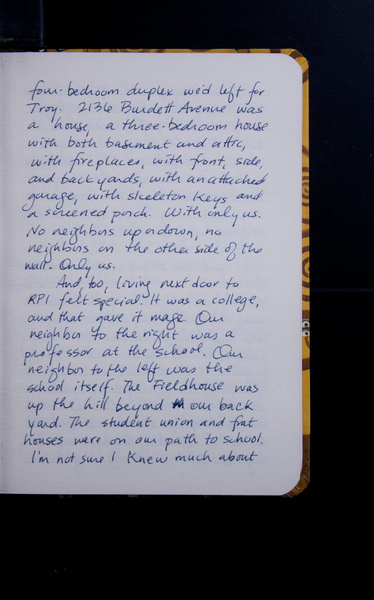 four-bedroom duplex we'd left for
Troy. 2136 Burdett Avenue was
a house, a three-bedroom house
with both basement and attic,
with fireplaces, with front, side,
and back yards, with an attached
garage, with skeleton keys and
a screened porch. With only us.
No neighbors up or down, no
neighbors on the other side of the
wall. Only us.
And, too, living next door to
RPI felt special. It was a college,
and that gave it magic. Our
neighbor to the right was a
professor at the school. Our
neighbor to the left was the
school itself. The Fieldhouse was
up the hill beyond our back
yard. The student union and frat
houses were on our path to school.
I'm not sure I knew much about